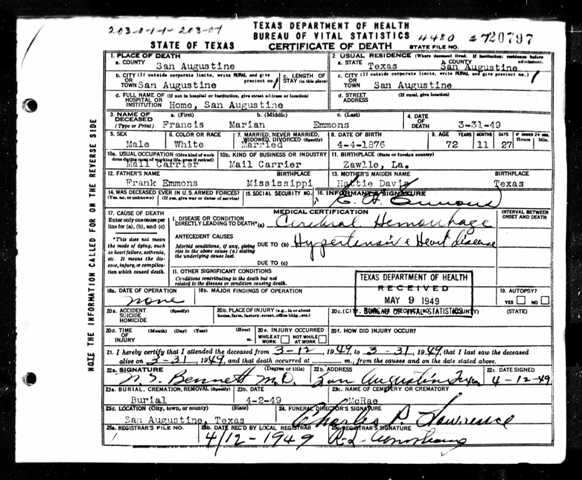 203-0-1-1-203-07
TEXAS DEPARTMENT OF HEALTH
BUREAU OF VITAL STATISTICS
4480
STATE OF TEXAS CERTIFICATE OF DEATH STATE FILE NO. 20797
1. PLACE OF DEATH
a. COUNTY
San Augustine
2. USUAL RESIDENCE (Where deceased lived. If institution: residence before
a. STATE
Texas
b. COUNTY
San Augustine
b. CITY (If outside corporate limits, write RURAL and give precinct no.)
OR TOWN San Augustine
c. LENGTH OF STAY (in this place)
c. CITY (If outside corporate limits, write RURAL and give precinct no.)
OR TOWN San Augustine
d. FULL NAME OF (If not in hospital or institution, give street address or location)
HOSPITAL OR INSTITUTION
Home, San Augustine
d. STREET ADDRESS (If rural, give location)
3. NAME OF DECEASED (Type or Print)
a. (First) b. (Middle) c. (Last)
Francis Marian Emmons
4. DATE OF DEATH
3-31-49
5. SEX
Male
6. COLOR OR RACE
White
7. MARRIED, NEVER MARRIED, WIDOWED, DIVORCED (Specify)
Married
8. DATE OF BIRTH
4-4-1876
9. AGE YEARS MONTHS DAYS
72 11 27
10a. USUAL OCCUPATION (Give kind of work
Mail Carrier
10b. KIND OF BUSINESS OR INDUSTRY
Mail Carrier
11. BIRTHPLACE (State or foreign country)
Zawllo, La.
12. FATHER'S NAME BIRTHPLACE
Frank Emmons Mississippi
13. MOTHER'S MAIDEN NAME BIRTHPLACE
Hattie Davis Texas
14. WAS DECEASED EVER IN U.S. ARMED FORCES?
15. SOCIAL SECURITY NO.
16. INFORMANT'S SIGNATURE
Emmons
17. CAUSE OF DEATH
Enter only one cause per line for (a), (b), and (c)
* This does not mean the mode of dying, such as heart failure, asthenia, etc. It means the disease, injury, or complication which caused death.
MEDICAL CERTIFICATION
INTERVAL BETWEEN ONSET AND DEATH
I. DISEASE OR CONDITION DIRECTLY LEADING TO DEATH* (a) Cerebral Hemorrhage
ANTECEDENT CAUSES
Morbid conditions, if any, giving rise to the above cause (a) stating the underlying cause last.
DUE TO (b) Hypertensive Heart Disease
DUE TO (c)
II. OTHER SIGNIFICANT CONDITIONS
Conditions contributing to the death but not related to the disease or condition causing death.
TEXAS DEPARTMENT OF HEALTH
RECEIVED
MAY 9 1949
BUREAU OF VITAL STATISTICS
18a. DATE OF OPERATION
none
18b. MAJOR FINDINGS OF OPERATION
19. AUTOPSY?
YES NO
20a. ACCIDENT SUICIDE HOMICIDE (Specify)
20b. PLACE OF INJURY
(STATE)
20d. TIME OF INJURY (Month) (Day) (Year) (Hour)
20e. INJURY OCCURRED
WHILE AT WORK NOT WHILE AT WORK
20f. HOW DID INJURY OCCUR?
21. I hereby certify that I attended the deceased from 3-12 1949 to 3-31 1949, that I last saw the deceased
alive on 3-31 1949, and that death occurred at m., from the causes and on the date stated above.
22a. SIGNATURE (Degree or title)
Bennett M.D.
22b. ADDRESS
San Augustine Texas
22c. DATE SIGNED
4-12-49
23a. BURIAL, CREMATION, REMOVAL (Specify)
Burial
23b. DATE
4-2-49
23c. NAME OF CEMETERY OR CREMATORY
McRae
23d. LOCATION (City, town, or county) (State)
San Augustine, Texas
24. FUNERAL DIRECTOR'S SIGNATURE
Charles P. Lawrence
25a. REGISTRAR'S FILE NO.
25b. DATE REC'D BY LOCAL REGISTRAR
4/12-1949
25c. REGISTRAR'S SIGNATURE
NOTE THE INFORMATION CALLED FOR ON THE REVERSE SIDE